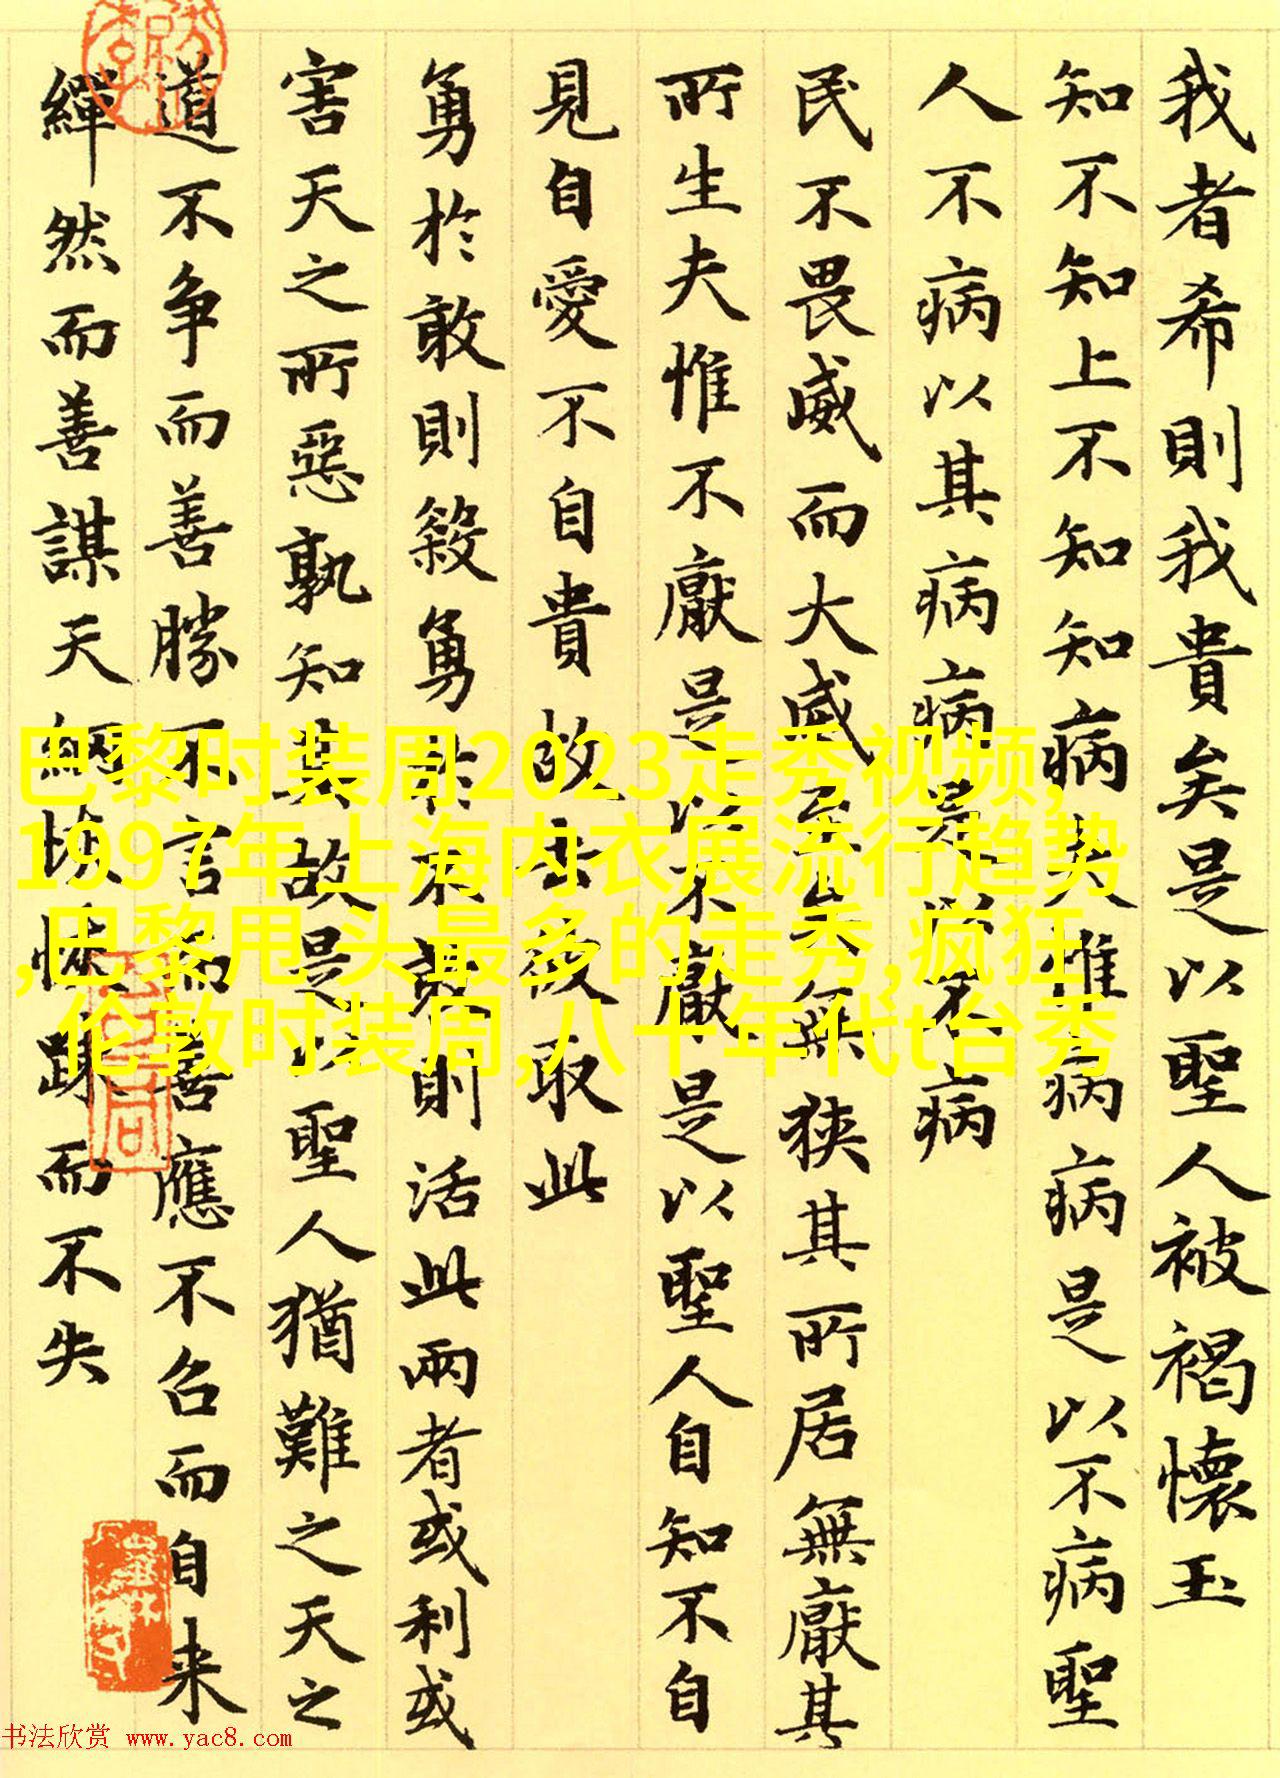 我者希則我貴矣是以聖人被褐懷玉
知不知上不知知病夫惟病病是以不病聖
人不病以其病病是以不病
民不畏威而大威至矣無狹其所居無厭其
所生夫惟不厭是以不厭是以聖人自知不自
見自愛不自貴故去彼取此
勇於敢則殺勇於不敢則活此兩者或利或
害天之所惡孰知其故是以聖人猶難之天之
道不争而善勝不言而善應不召而自来
繟然而善謀天網恢恢踈而不失
巴黎时装周2023走秀视频,
1997年上海内衣展流行趋势
,巴黎甩头最多的走秀,疯狂
伦敦时装周,八十年代t台秀
书法欣赏 www.yac8.com